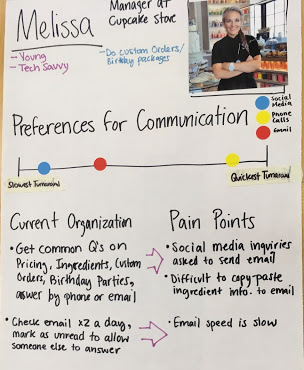 Melissa
Manager at
Cupcake store
-- Young
-- Tech Savvy
-Do custom Orders/
Birthday packages
Preferences for Communication
Social
Media
Phone
Calls
Email
Slowest Turnaround
Quickest Turnaround
Current Organization
• Get common Q's on
Pricing, Ingredients, Custom
Orders, Birthday Parties,
answer by phone or email
• Check email x2 a day,
mark as unread to allow
someone else to answer
Pain Points
• Social media inquiries
asked to send email
• Difficult to copy-paste
ingredient info. to email
• Email speed is slow